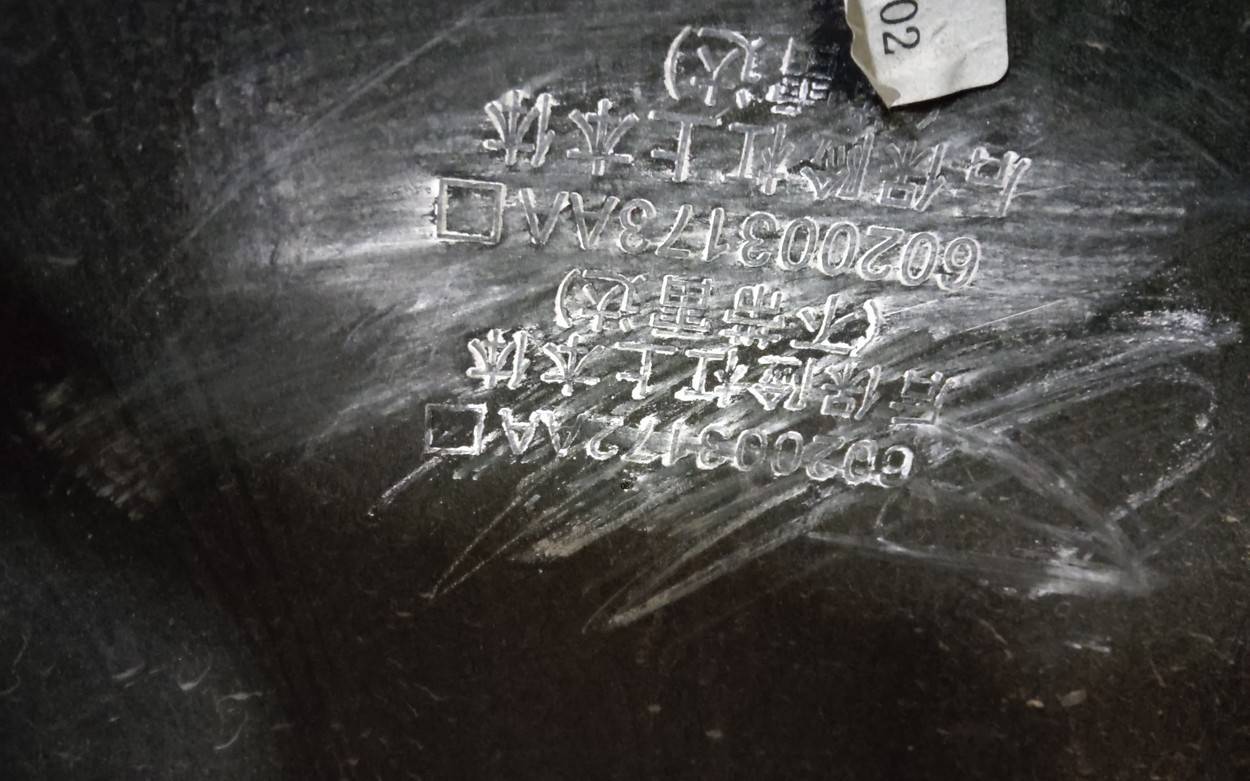 602003172AA
后保险杠上本体
(不带雷达)
602003173AA
后保险杠上本体
雷达)
02